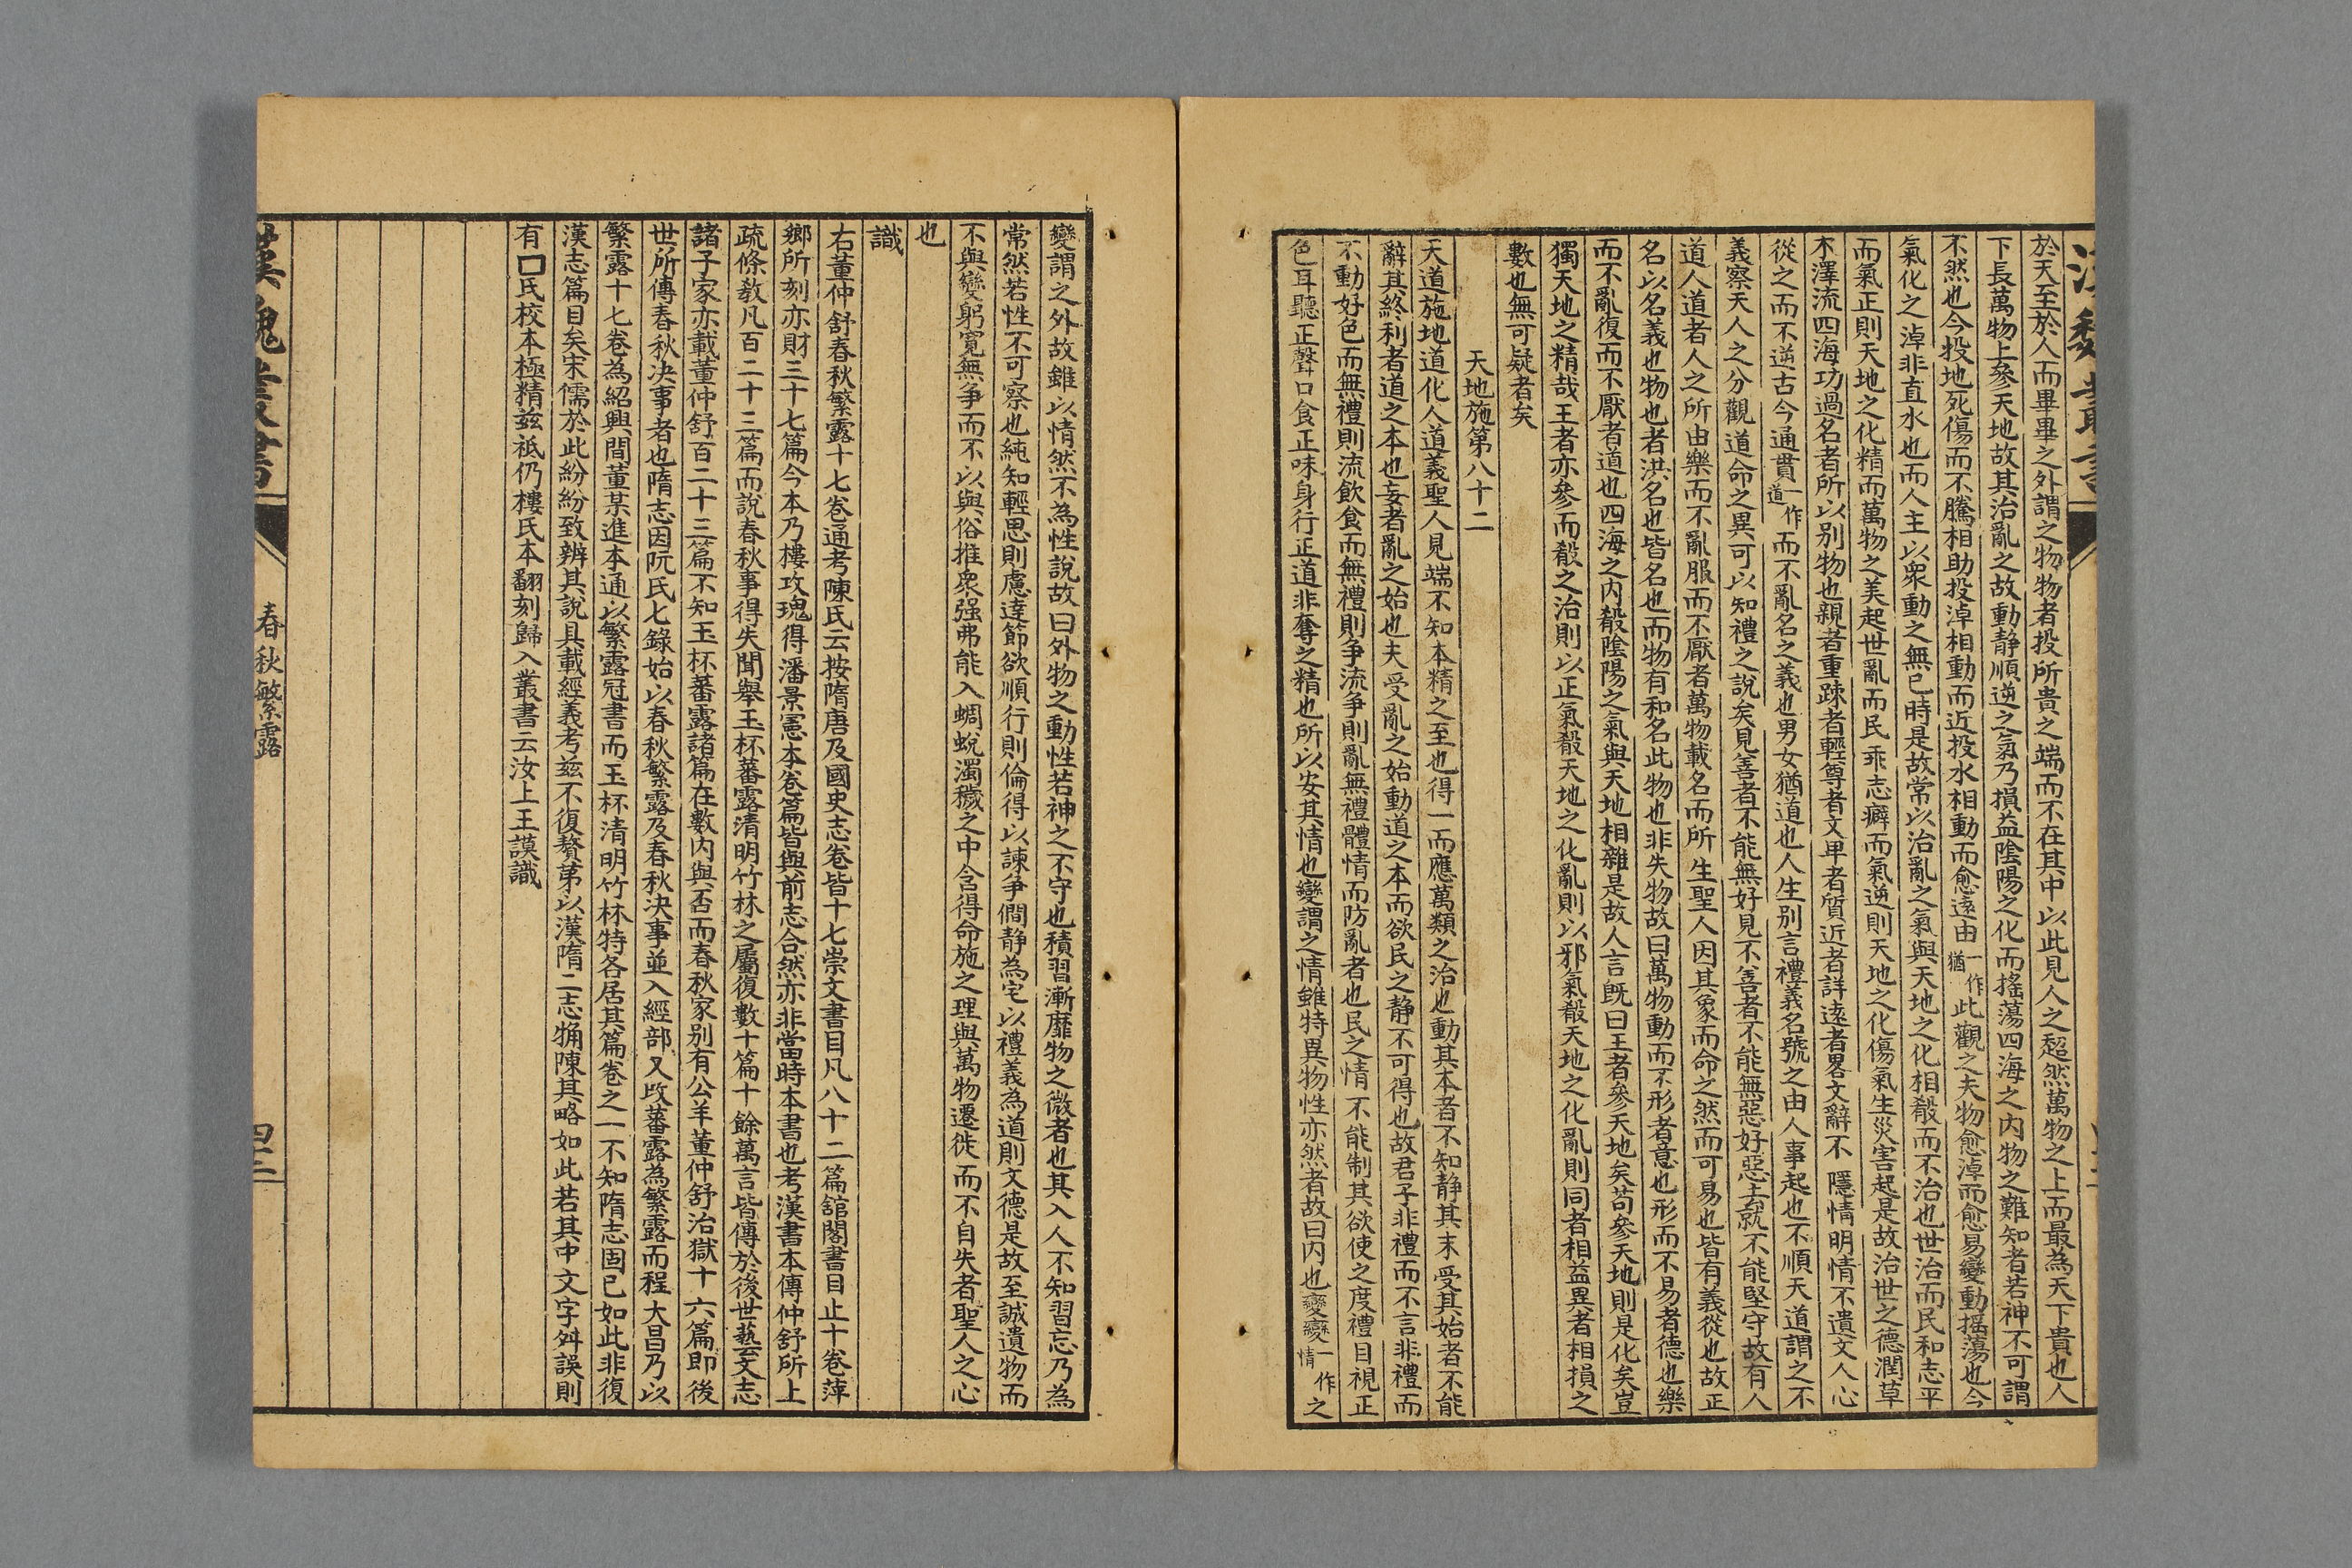 於天至於人而畢畢之外謂之物物者投所貴之端而不在其中以此見人之超然萬物之上而最為天下貴也人
下長萬物上參天地故其治亂之故動静順逆之氣乃損益陰陽之化而搖蕩四海之内物之難知者若神不可謂
不然也今投地死傷而不騰相助投淖相動而近投水相動而愈遠由一作猶此觀之夫物愈淖而愈易變動摇蕩也今
氣化之淖非直水也而人主以衆動之無已時是故常以治亂之氣與天地之化相殽而不治也世治而民和志平
而氣正則天地之化精而萬物之美起世亂而民乖志癖而氣逆則天地之化傷氣生災害起是故治世之德潤草
木澤流四海功過名者所以别物也親者重踈者輕尊者文卑者質近者詳遠者畧文辭不隱情明情不遺文人心
從之而不逆古今通貫一作道而不亂名之義也男女猶道也人生别言禮義名號之由人事起也不順天道謂之不
義察天人之分觀道命之異可以知禮之說矣見善者不能無好見不善者不能無惡好惡去就不能堅守故有人
道人道者人之所由樂而不亂服而不厭者萬物載名而所生聖人因其象而命之然而可易也皆有義從也故正
名以名義也物也者洪名也皆名也而物有和名此物也非失物故曰萬物動而不形者意也形而不易者德也樂
而不亂復而不厭者道也四海之内殽陰陽之氣與天地相雜是故人言旣曰王者參天地矣苟參天地則是化矣豈
獨天地之精哉王者亦參而殽之治則以正氣殽天地之化亂則以邪氣殽天地之化亂則同者相益異者相損之
數也無可疑者矣
天地施第八十二
天道施地道化人道義聖人見端不知本精之至也得一而應萬類之治也動其本者不知静其末受其始者不能
辭其終利者道之本也妄者亂之始也夫受亂之始動道之本而欲民之静不可得也故君子非禮而不言非禮而
不動好色而無禮則流飲食而無禮則争流争則亂無禮體情而防亂者也民之情不能制其欲使之度禮目視正
色耳聽正聲口食正味身行正道非奪之精也所以安其情也變謂之情雖特異物性亦然者故曰内也變變一作情之
變謂之外故雖以情然不為性說故曰外物之動性若神之不守也積習漸靡物之微者也其入人不知習忘乃為
常然若性不可察也純知輕思則慮達節欲順行則倫得以諫争僩静為宅以禮義為道則文德是故至誠遺物而
不與變躬寛無争而不以與俗推衆强弗能入蜩蛻濁穢之中含得命施之理與萬物遷徙而不自失者聖人之心
也
識
右董仲舒春秋繁露十七卷通考陳氏云按隋唐及國史志卷皆十七崇文書目凡八十二篇舘閣書目止十卷萍
鄉所刻亦財三十七篇今本乃樓攻瑰得潘景憲本卷篇皆與前志合然亦非當時本書也考漢書本傳仲舒所上
疏條敎凡百二十三篇而說春秋事得失聞舉玉杯蕃露清明竹林之屬復數十篇十餘萬言皆傳於後世藝文志
諸子家亦載董仲舒百二十三篇不知玉杯蕃露諸篇在數内與否而春秋家别有公羊董仲舒治獄十六篇即後
世所傳春秋决事者也隋志因阮氏七錄始以春秋繁露及春秋决事並入經部又改蕃露為繁露而程大昌乃以
繁露十七卷為紹興間董某進本通以繁露冠書而玉杯清明竹林特各居其篇卷之一不知隋志固已如此非復
漢志篇目矣宋儒於此紛紛致辨其說具載經義考兹不復贅第以漢隋二志觕陳其略如此若其中文字舛誤則
有囗氏校本極精兹祇仍樓氏本翻刻歸入叢書云汝上王謨識
漢魏叢書
春秋繁露
四三